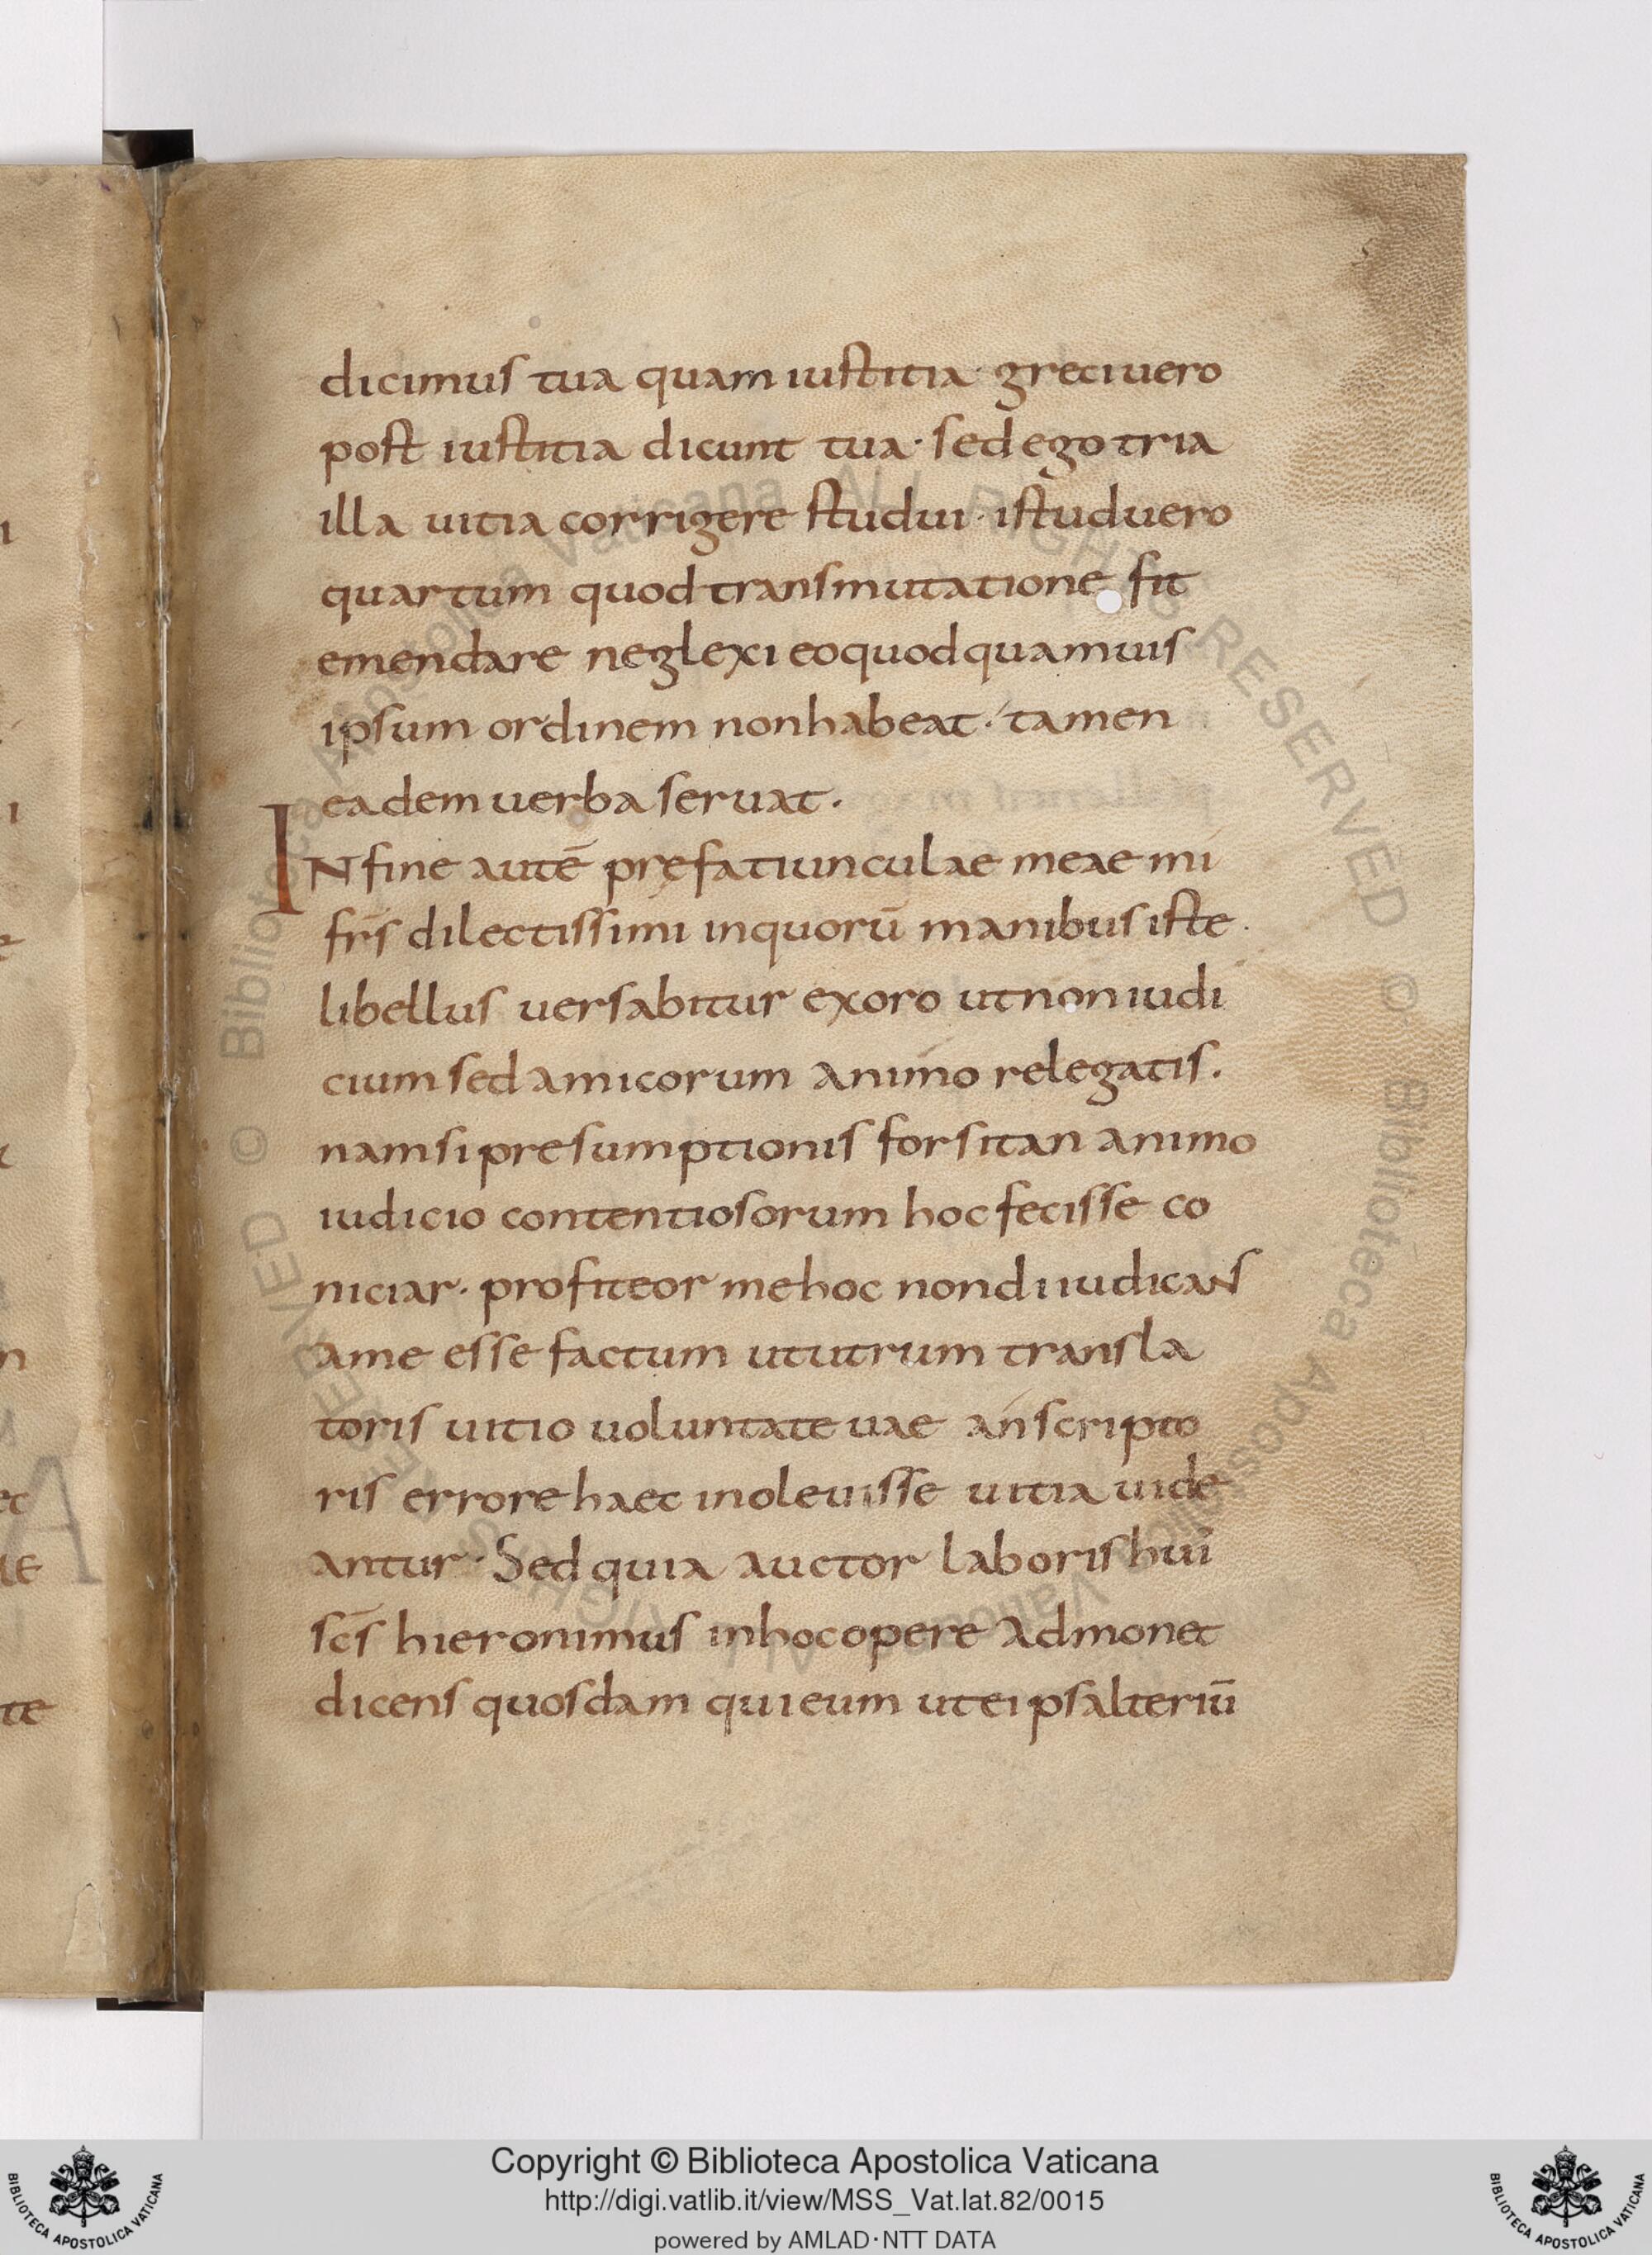 dicimus tua quam iustitia· greci uero
post iustitia dicunt tua· sed ego tria
illa uitia corrigere studui· istud uero
quartum quod transmutatione fit
emendare neglexi eo quod quamuis
ipsum ordinem non habeat· tamen
eadem uerba seruat.
IN fine autē prefatiunculae meae mi
frs̄ dilectissimi in quorū manibus iste
libellus uersabitur exoro ut non iudi
cium sed amicorum animo relegatis.
nam si presumptionis forsitan animo
iudicio contentiosorum hoc fecisse co
niciar· profiteor me hoc non diiudicans
a me esse factum ut utrum transla
toris uitio uoluntate uae an scripto
ris errore haec inoleuisse uitia uide
antur· Sed quia auctor laboris hui
scs̄ hieronimus in hoc opere admonet
dicens quosdam qui eum ut ei psalteriū
Copyright © Biblioteca Apostolica Vaticana
http://digi.vatlib.it/view/MSS_Vat.lat.82/0015
powered by AMLAD·NTT DATA
BIBLIOTECA APOSTOLICA VATICANA
BIBLIOTECA APOSTOLICA VATICANA